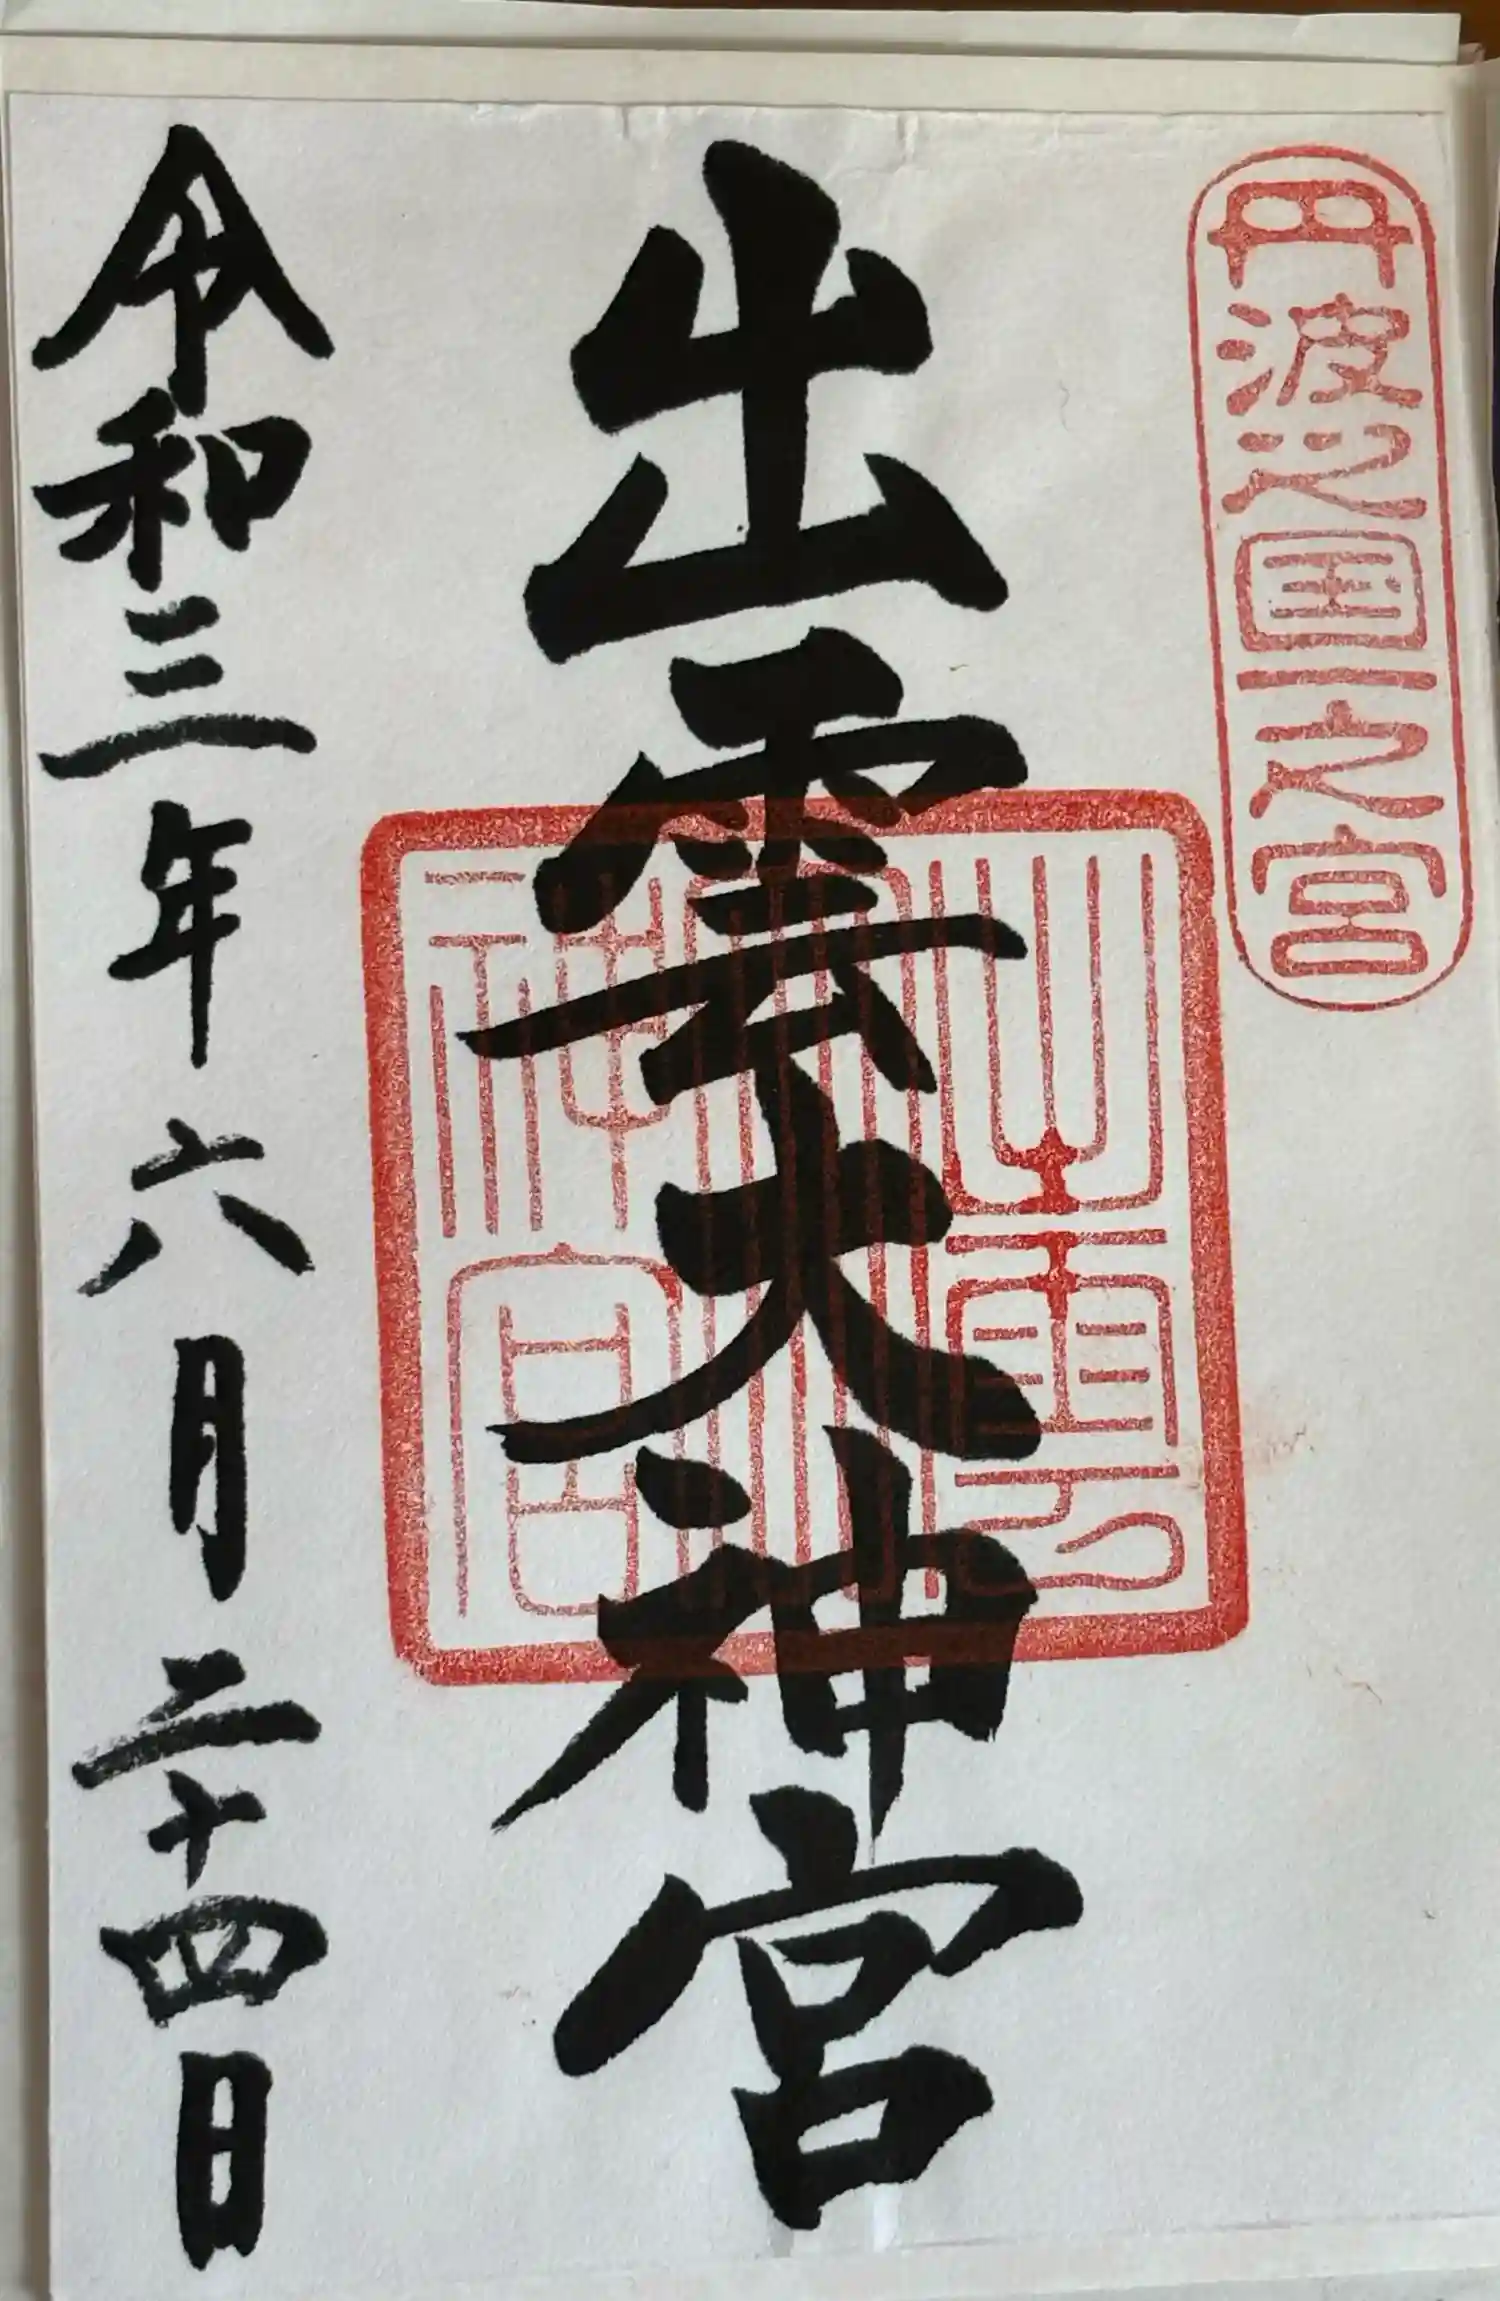 丹波之国一之宮
出雲大神宮
出雲大神宮
令和三年六月二十四日